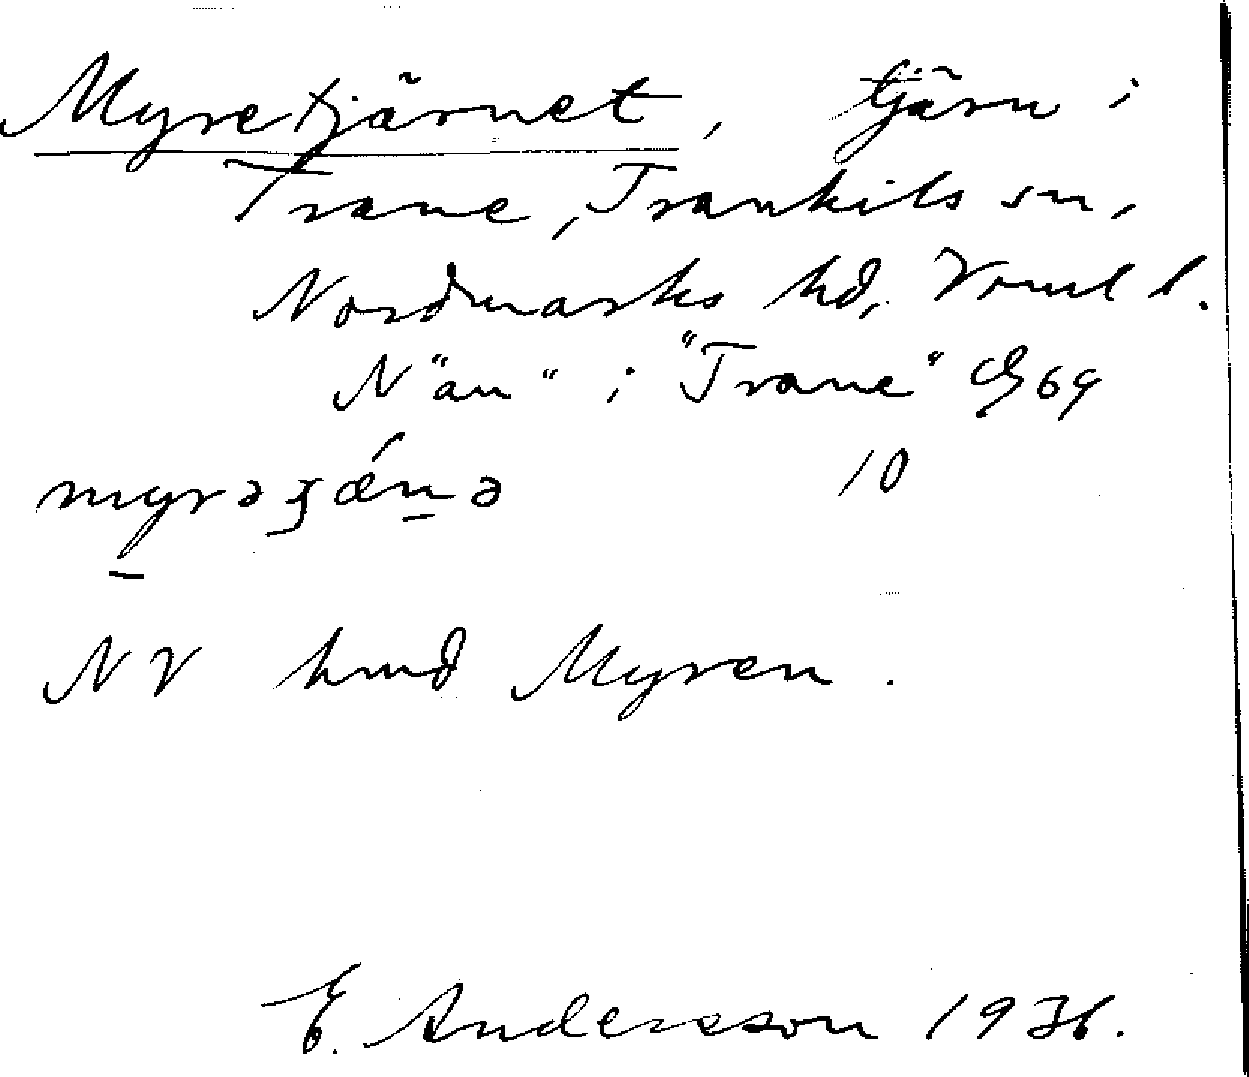 Myretjärnet, tjärn i
Trane, Trankils sn,
Nordmarks hd, Vrml l.
N "än" i "Trane" EB 69
myrəʒǽnə 10
NV hmd Myren.
E. Andersson 1936.